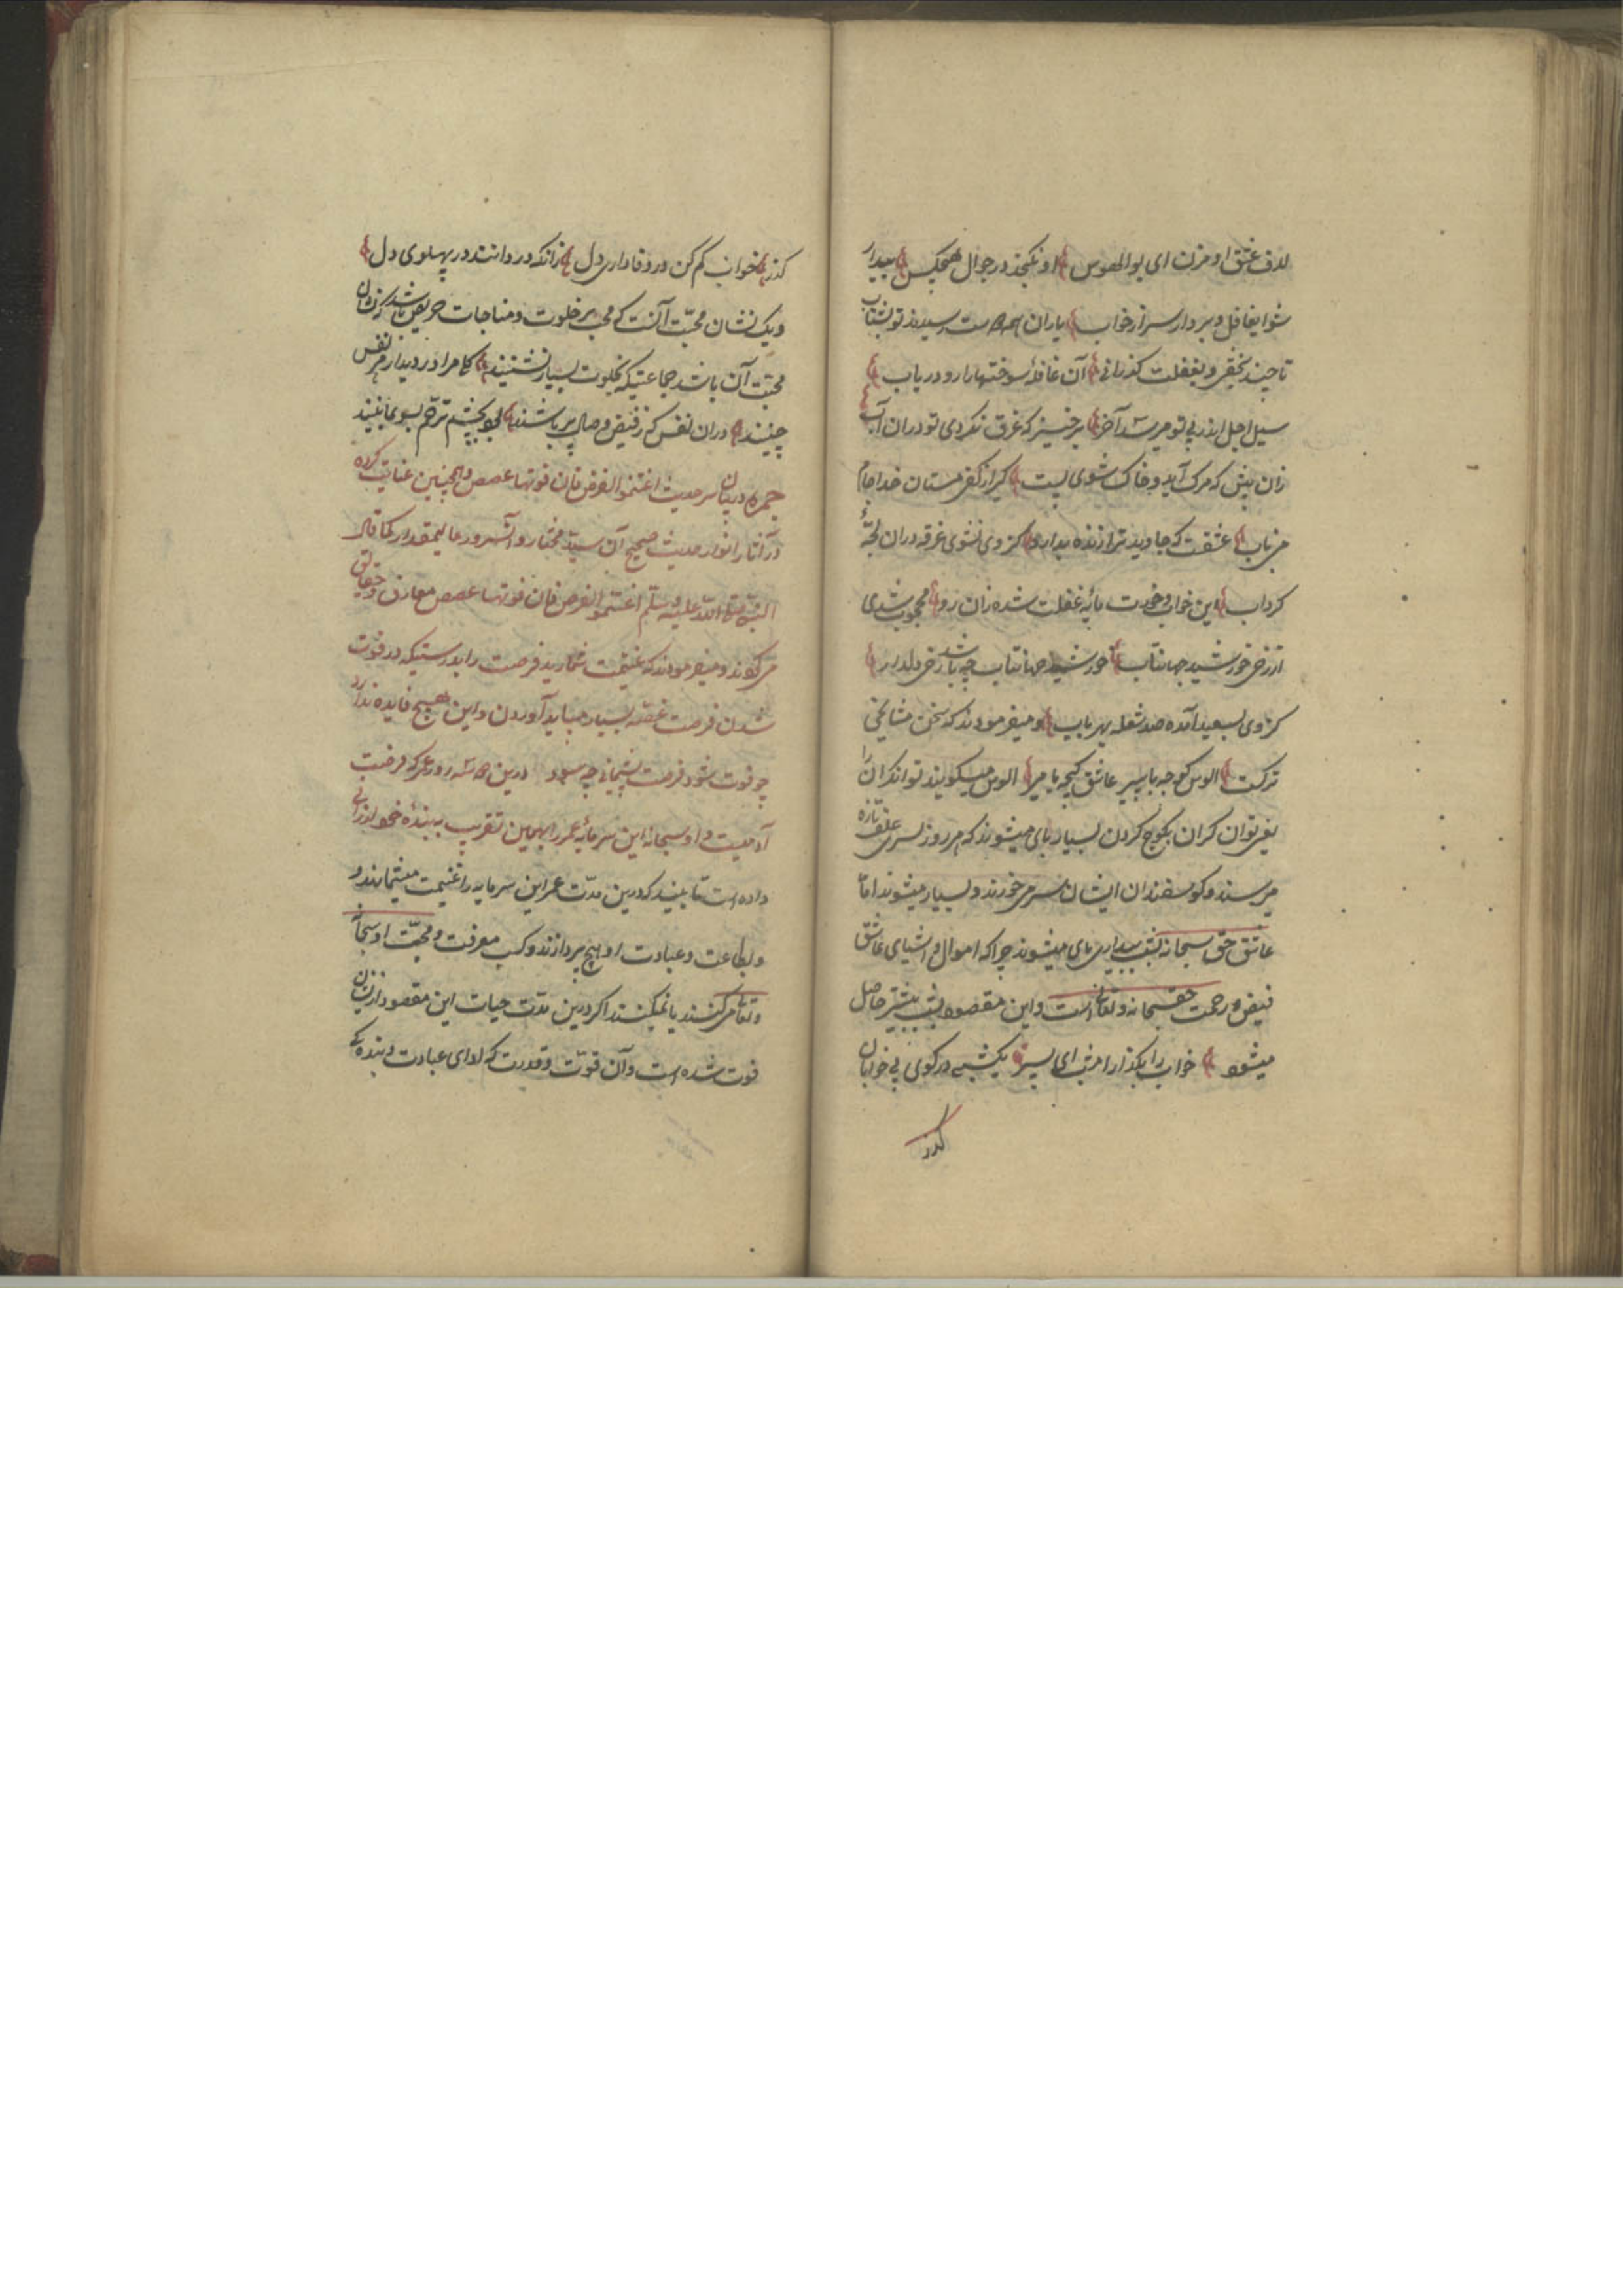 لاف عشق او مزن ای بوالهوس او نکنجد در جوال هیچکس بیدار
شو ایغافل و بردار سر از خواب یاران همه رسیدند تو بشتاب
تا چند بخفتی و بغفلت کذرانی آن غافلهٔ سوختها را رو دریاب
سیل اجل اندر پی تو میرسد آخر برخیز که غرق نکردی تو دران آب
زان پیش که مرک آید و خاک شوی پست کیر از کف مستان خدا جام
می ناب عشقت که جاوید ترا زنده بدارد کز وی نشوی غرقه دران لجهٔ
کرداب این خواب و خورت مایهٔ غفلت شده زان رو محجوب شدی
از رخ خورشید جهانتاب خورشید جهانتاب چه باشد رخ دلدار
کز وی بسعید آمده صد شعله بهر باب و میفرمودند که سخن مشایخ
ترکست الوس کوچه باییر عاشق کیچه بایر الوس میکویند توانکران را
یعنی توان کران بکوچ کردن بسیار بای میشوند که هر روز بسر علف تازه
میرسند و کوسفندان ایشان سیر میخورند و بسیار میشوند اما
عاشق حق سبحانه بشب بیداری بای میشوند چرا که اموال و اشیای عاشق
فیض و رحمت حق سبحانه و تعالی است و این مقصود بشب بیشتر حاصل
میشود خواب را بکذار امشب ای پسر یکشبی در کوی بی خوابان
کذر
کذر خواب کم کن در وفاداری دل زانکه دردانند در پهلوی دل
و یک نشان محبت آنست که محب بر خلوت و مناجات حریص باشد که نشان
محبت آن باشد جماعتیکه بخلوت بسیار نشینند کام مراد ز دیدار هر نفس
چینند دران نفس که ز فیض وصال پر باشند بچشم ترحم بسوی ما بینند
در بیان سر حدیث اغتنموا الفرض فان فوتها غصص و همچنین عنایت کرده
در آثار انوار حدیث صحیح آن سید مختار و آن سرور عالیمقدار کما قال
النبی صلی الله علیه و سلم اغتنموا الفرص فان فوتها غصص معارف و حقایق
میکویند و میفرمودند که غنیمت شمارید فرصت را بدرستیکه در فوت
شدن فرصت غصه بسیار میباید آوردن و این هیچ فایده ندارد
چو فوت شود فرصت پشیمانی چه سود درین روز عمر که فرصت
آدمیست و او سبحانه این سرمایهٔ عمر را بهمین تقریب ببندهٔ خود ارزانی
داده است تا بیند که درین مدت عمر این سرمایه را غنیمت میشمارند و
و بطاعت و عبادت او هیچ پردازند و کسب معرفت و محبت او سبحانه
و تعالی میکنند یا نمیکنند اکر درین مدت حیات این مقصود ازیشان
فوت شده است و آن قوت و قدرت که ادای عبادت و بندکی